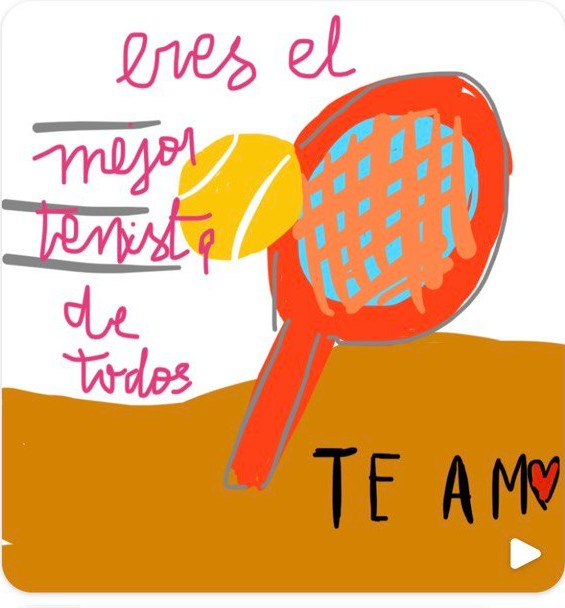 eres el
mejor
tenista
de
todos
TE AM❤